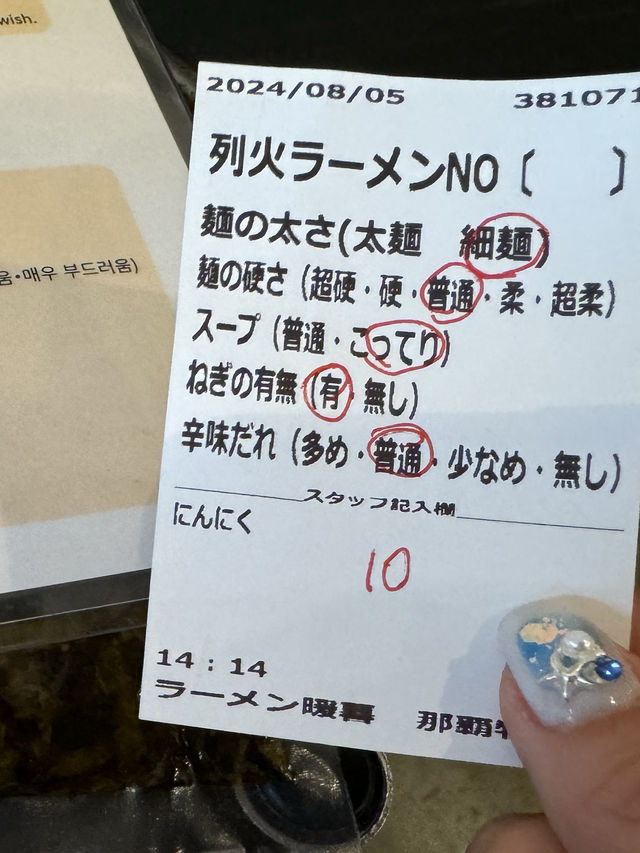 wish.
움•매우 부드러움)
2024/08/05 381071
列火ラーメンNO〔 〕
麺の太さ(太麺 細麺)
麺の硬さ (超硬・硬・普通・柔・超柔)
スープ (普通・こってり)
ねぎの有無 (有・無し)
辛味だれ (多め・普通・少なめ・無し)
スタッフ記入欄
にんにく
10
14：14
ラーメン暖暮 那覇